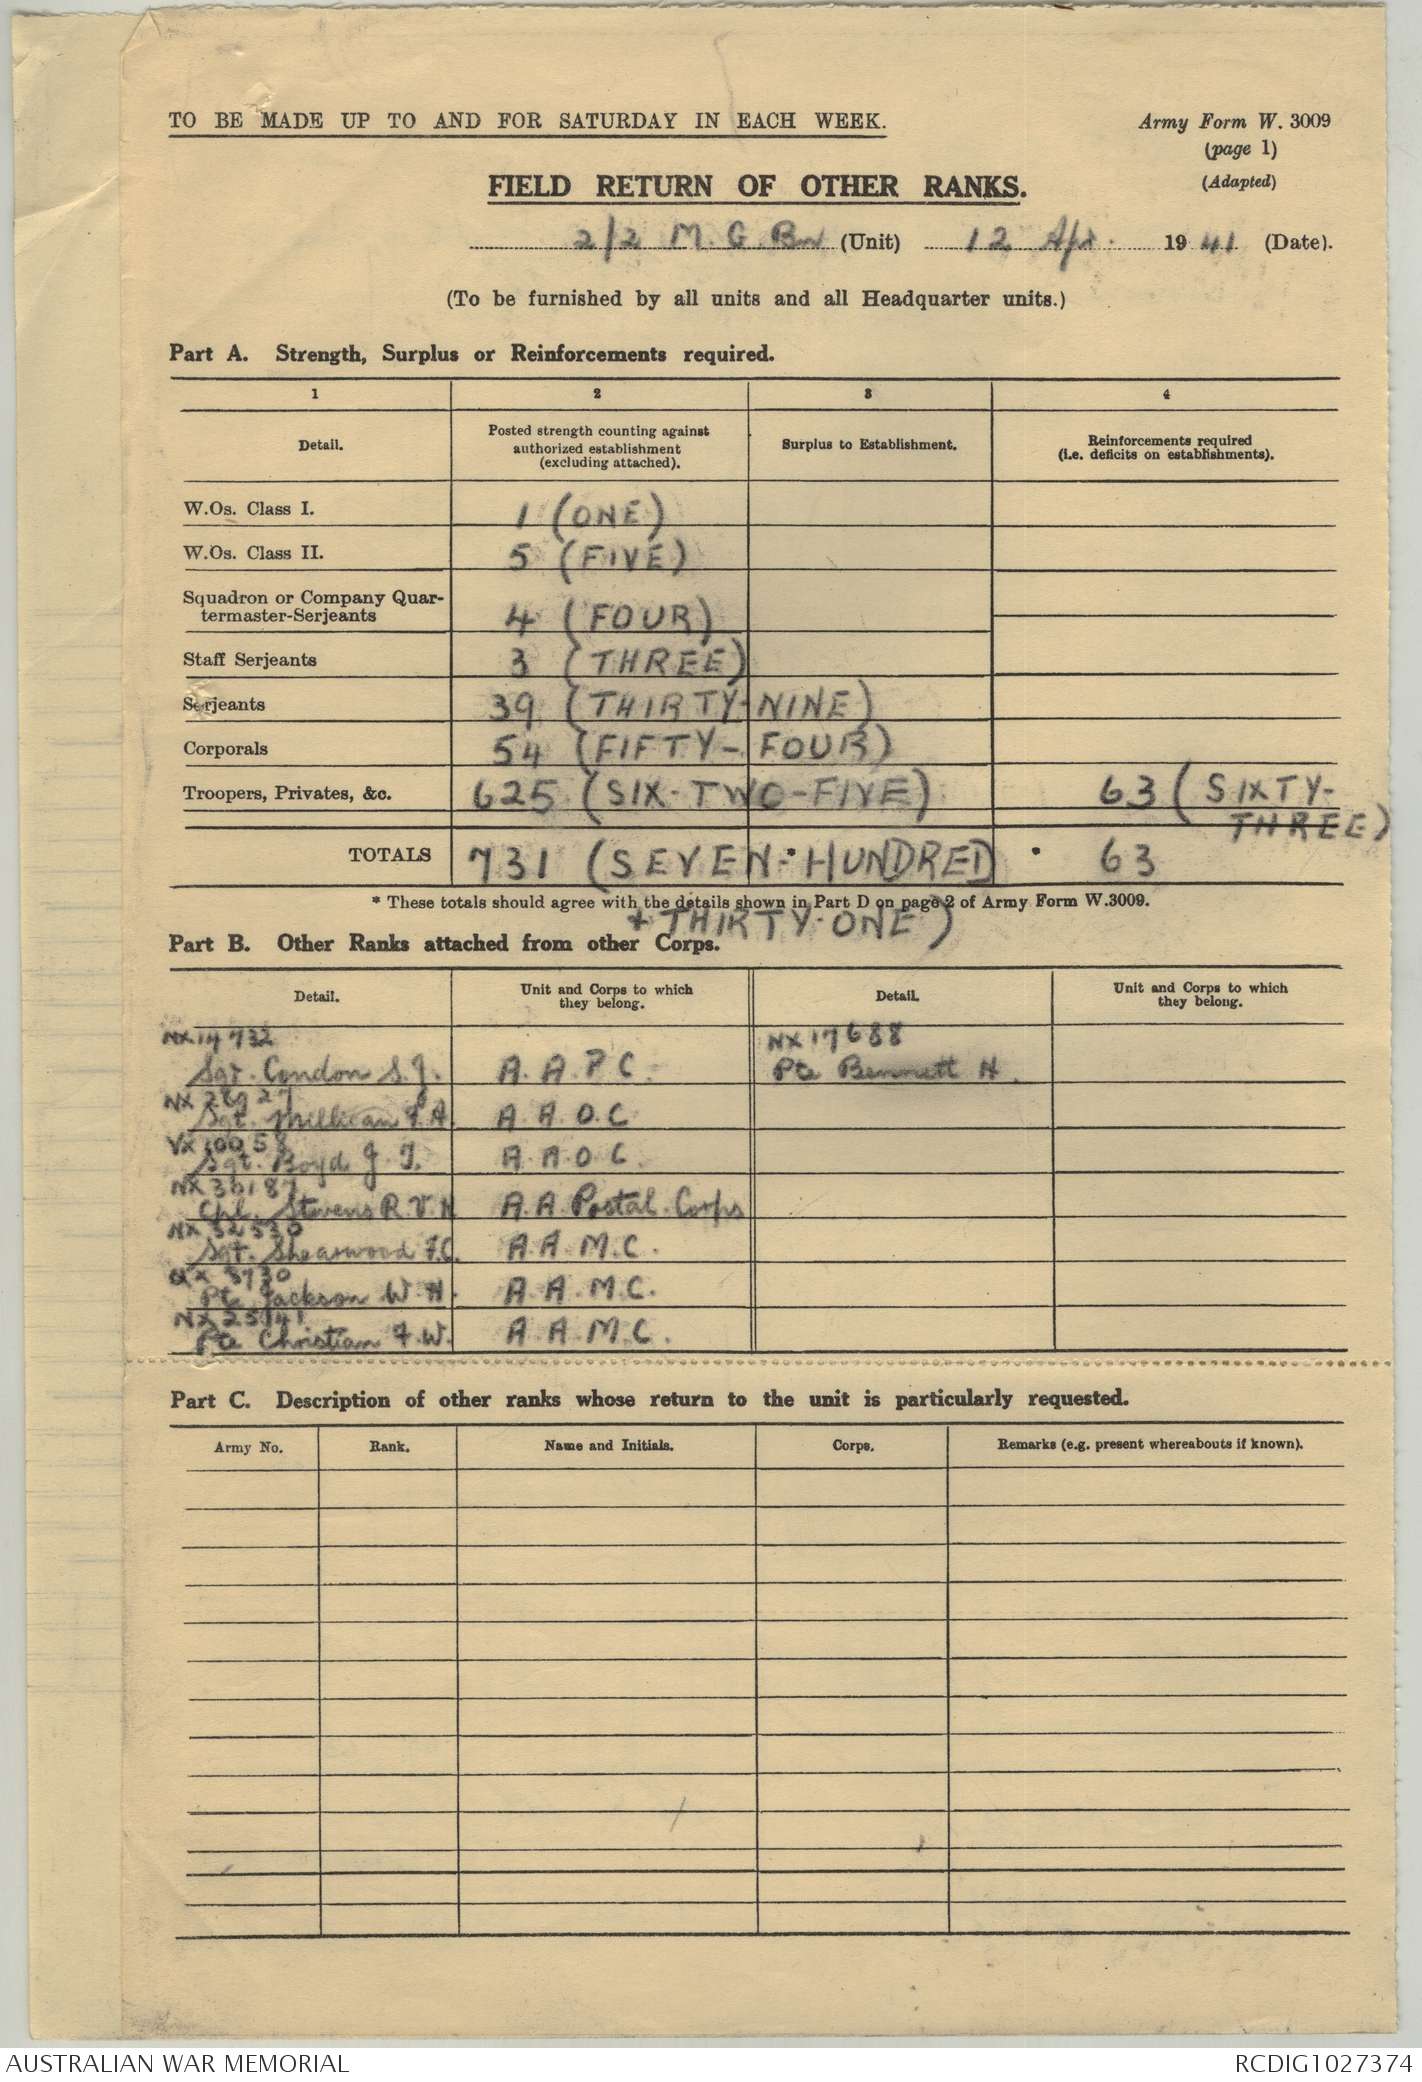 TO BE MADE UP TO AND FOR SATURDAY IN EACH WEEK.
Army Form W. 3009
(page 1)
(Adapted)
FIELD RETURN OF OTHER RANKS.
2/2 M. G. Bn (Unit) 12 Apr. 1941 (Date).
(To be furnished by all units and all Headquarter units.)
Part A. Strength, Surplus or Reinforcements required.
1 2 3 4
Detail.
Posted strength counting against
authorized establishment
(excluding attached).
Surplus to Establishment.
Reinforcements required
(i.e. deficits on establishments).
W.Os. Class I. 1 (ONE)
W.Os. Class II. 5 (FIVE)
Squadron or Company Quar-
termaster-Serjeants 4 (FOUR)
Staff Serjeants 3 (THREE)
Serjeants 39 (THIRTY-NINE)
Corporals 54 (FIFTY-FOUR)
Troopers, Privates, &c. 625 (SIX-TWO-FIVE) 63 (SIXTY-
THREE)
TOTALS 731 (SEVEN-*HUNDRED * 63
* These totals should agree with the details shown in Part D on page 2 of Army Form W.3009.
+ THIRTY-ONE)
Part B. Other Ranks attached from other Corps.
Detail.
Unit and Corps to which
they belong.
Detail.
Unit and Corps to which
they belong.
NX14732 NX17688
Sgt. Condon S. J. A. A. P. C. Pte Bennett H.
Sgt. Millican F. A. A. A. O. C
VX10058
Sgt. Boyd J. T. A. A. O. C.
NX36187
Cpl. Stevens R. V. H A. A. Postal. Corps
NX32530
Sgt. Shearwood F. C. A. A. M. C.
QX 3730
Pte Jackson W. H. A. A. M. C.
NX25941
Pte Christian F. W. A. A. M. C.
Part C. Description of other ranks whose return to the unit is particularly requested.
Army No. Rank. Name and Initials. Corps. Remarks (e.g. present whereabouts if known).
AUSTRALIAN WAR MEMORIAL RCDIG1027374